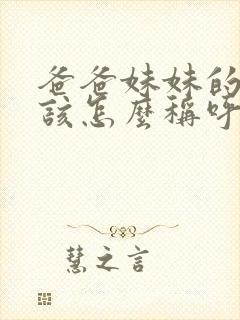 爸爸妹妹的
該怎麼稱呼
慧之言